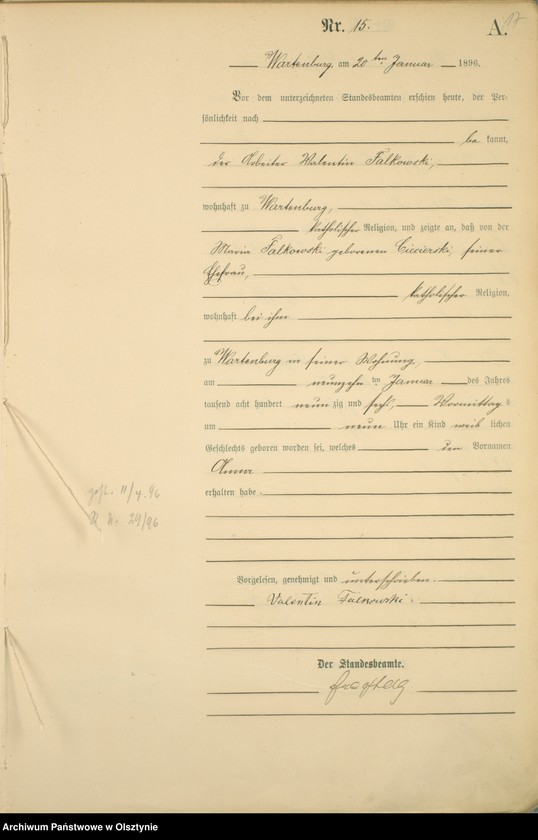 17
Nr. 15.
A.
Wartenburg, am 20 ten Januar 1896.
Vor dem unterzeichneten Standesbeamten erschien heute, der Per-
sönlichkeit nach
be kannt,
der Arbeiter Valentin Falkowski,
wohnhaft zu Wartenburg,
katholischer Religion, und zeigte an, daß von der
Maria Falkowski geborenen Ciecierski, seiner
Ehefrau,
katholischer Religion,
wohnhaft bei ihm
zu Wartenburg in seiner Wohnung,
am neunzehn ten Januar des Jahres
tausend acht hundert neun zig und sechs, Vormittag s
um neun Uhr ein Kind weib lichen
Geschlechts geboren worden sei, welches den Vornamen
Anna
erhalten habe.
gest. 11/4. 96
N. 29/96
Vorgelesen, genehmigt und unterschrieben.
Valentin Falkowski.
Der Standesbeamte.
Archiwum Państwowe w Olsztynie